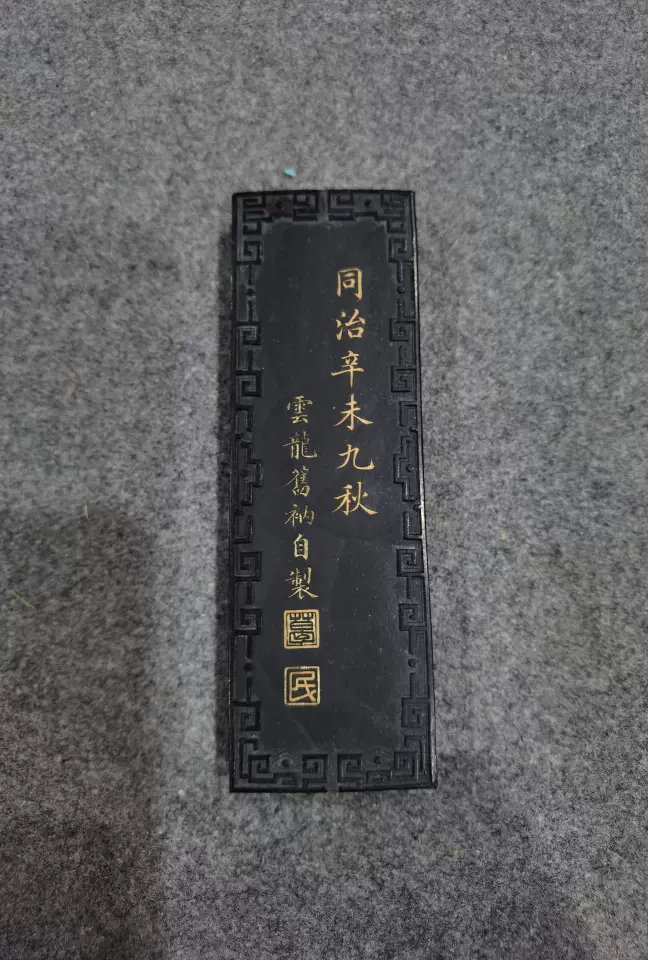 同治辛未九秋
雲龍舊衲自製
氏